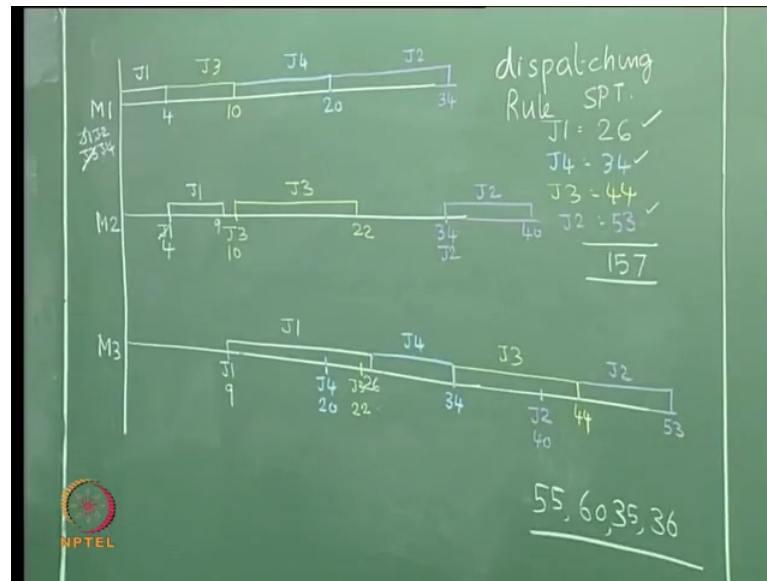 J1 J3 J4 J2
M1 4 10 20 34
J1J2
J3J4
dispatching
Rule SPT.
J1 = 26 ✓
J4 = 34 ✓
J3 = 44
J2 = 53 ✓
157
J1 J3 J2
M2 J1 9 J3 22 34 40
4 10 J2
J1 J4 J3 J2
M3 J1 J4 J3 26 34 J2 44 53
9 20 22 40
55, 60, 35, 36
NPTEL